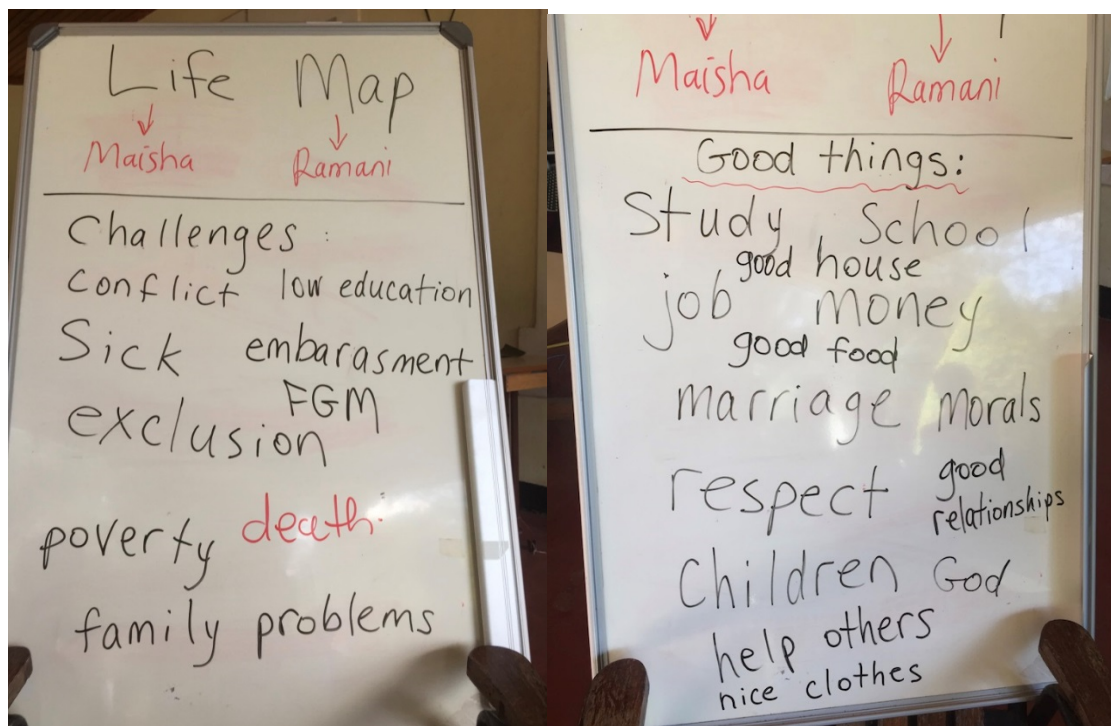 Life Map
Maisha Ramani
Challenges:
conflict low education
Sick embarasment
FGM
exclusion
poverty death
family problems
Maisha Ramani
Good things:
Study School
good house
job money
good food
marriage Morals
respect good
relationships
Children God
help others
nice clothes